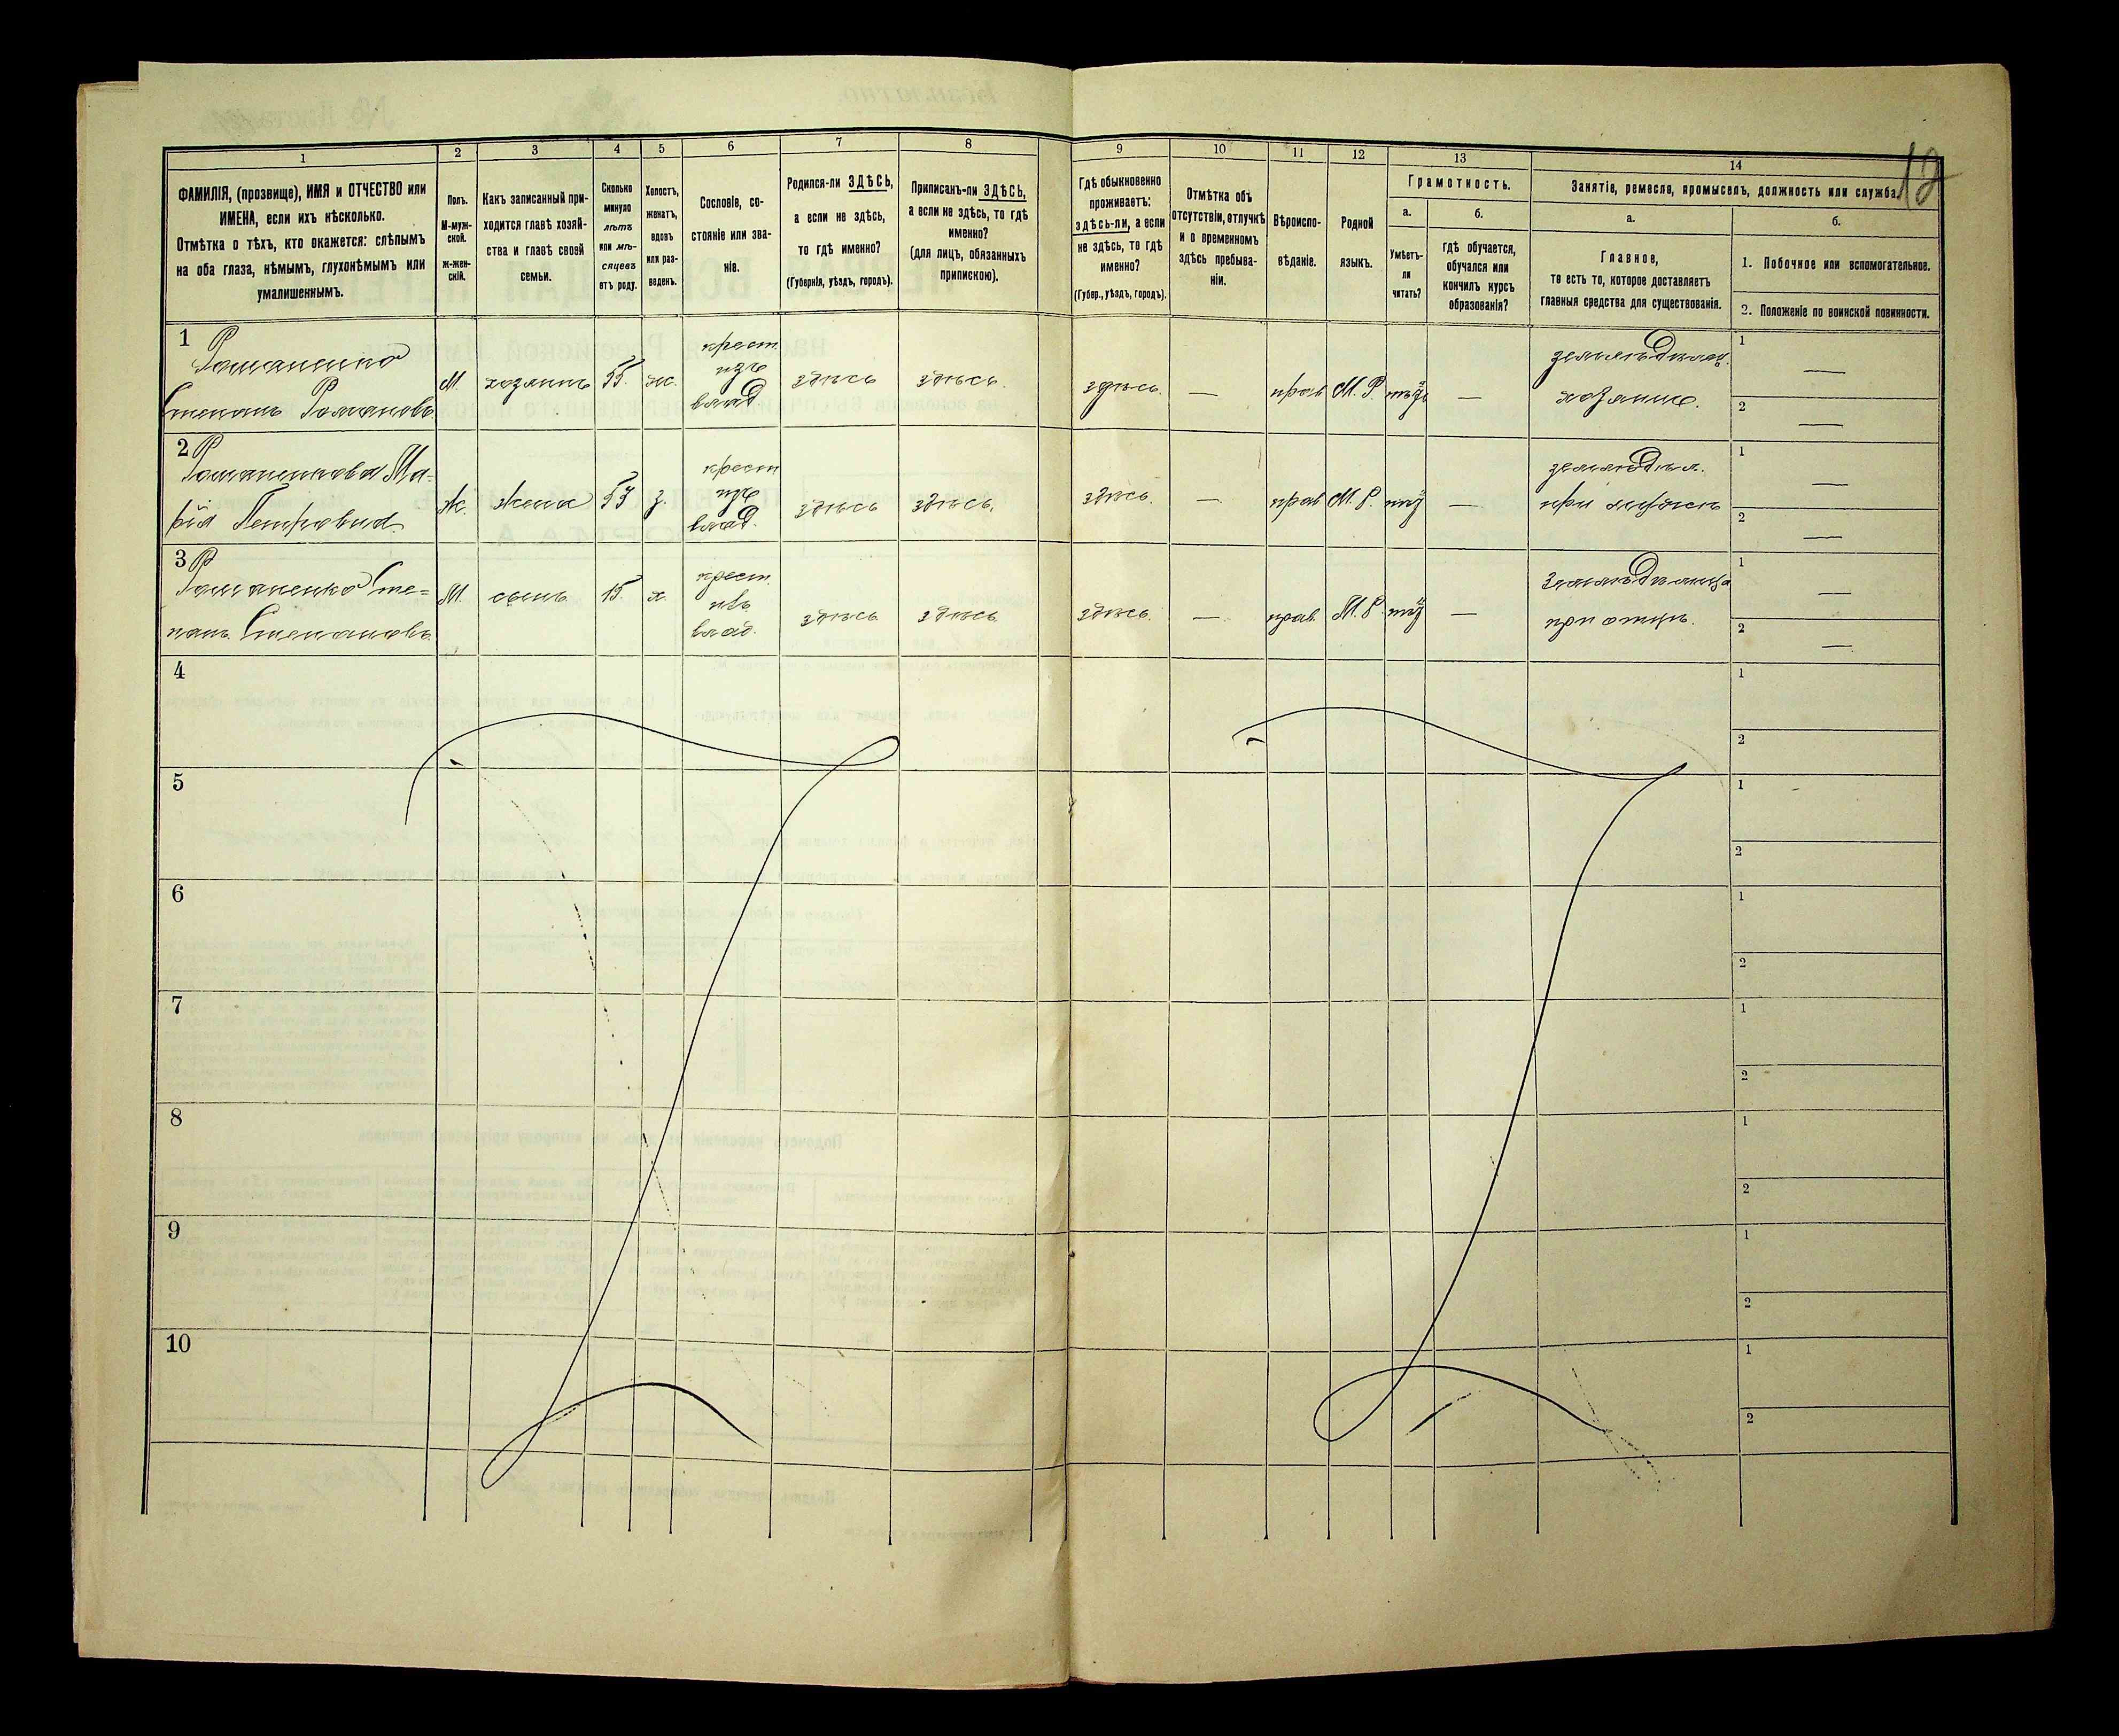 12
1
2
3
4
5
6
7
8
9
10
11
12
13
14
ФАМИЛІЯ, (прозвище), ИМЯ и ОТЧЕСТВО или
ИМЕНА, если ихъ нѣсколько.
Отмѣтка о тѣхъ, кто окажется: слѣпымъ
на оба глаза, нѣмымъ, глухонѣмымъ или
умалишеннымъ.
Полъ.
М-муж-
ской.
Ж-жен-
скій.
Какъ записанный при-
ходится главѣ хозяй-
ства и главѣ своей
семьи.
Сколько
минуло
лѣтъ
или мѣ-
сяцевъ
отъ роду.
Холостъ,
женатъ,
вдовъ
или раз-
веденъ.
Сословіе, со-
стояніе или зва-
ніе.
Родился-ли ЗДѢСЬ,
а если не здѣсь,
то гдѣ именно?
(Губернія, уѣздъ, городъ).
Приписанъ-ли ЗДѢСЬ,
а если не здѣсь, то гдѣ
именно?
(для лицъ, обязанныхъ
припискою).
Гдѣ обыкновенно
проживаетъ:
здѣсь-ли, а если
не здѣсь, то гдѣ
именно?
(Губер., уѣздъ, городъ).
Отмѣтка объ
отсутствіи, отлучкѣ
и о временномъ
здѣсь пребыва-
ніи.
Вѣроиспо-
вѣданіе.
Родной
языкъ.
Грамотность.
а.
б.
Умѣетъ-
ли
читать?
гдѣ обучается,
обучался или
кончилъ курсъ
образованія?
Занятіе, ремесло, промыселъ, должность или служба.
а.
б.
Главное,
то есть то, которое доставляетъ
главныя средства для существованія.
1. Побочное или вспомогательное.
2. Положеніе по воинской повинности.
1
Романенко
Степанъ Романовъ
М.
хозяинъ
55.
ж.
крест.
изъ
влад.
здѣсь
здѣсь.
здѣсь.
—
прав
М. Р.
—
земледѣлец.
хозяинъ.
1 —
2 —
2
Романенкова Ма-
рія Петровна
Ж.
жена
53
з.
крест
изъ
влад.
здѣсь
здѣсь.
здѣсь.
—
прав
М. Р.
—
земледѣл.
при мужѣ
1 —
2 —
3
Романенко Сте-
панъ Степановъ
М.
сынъ
15.
х.
крест.
изъ
влад.
здѣсь
здѣсь
здѣсь.
—
прав.
М. Р.
—
Земледѣлица
при отцѣ.
1 —
2 —
4
1
2
5
1
2
6
1
2
7
1
2
8
1
2
9
1
2
10
1
2